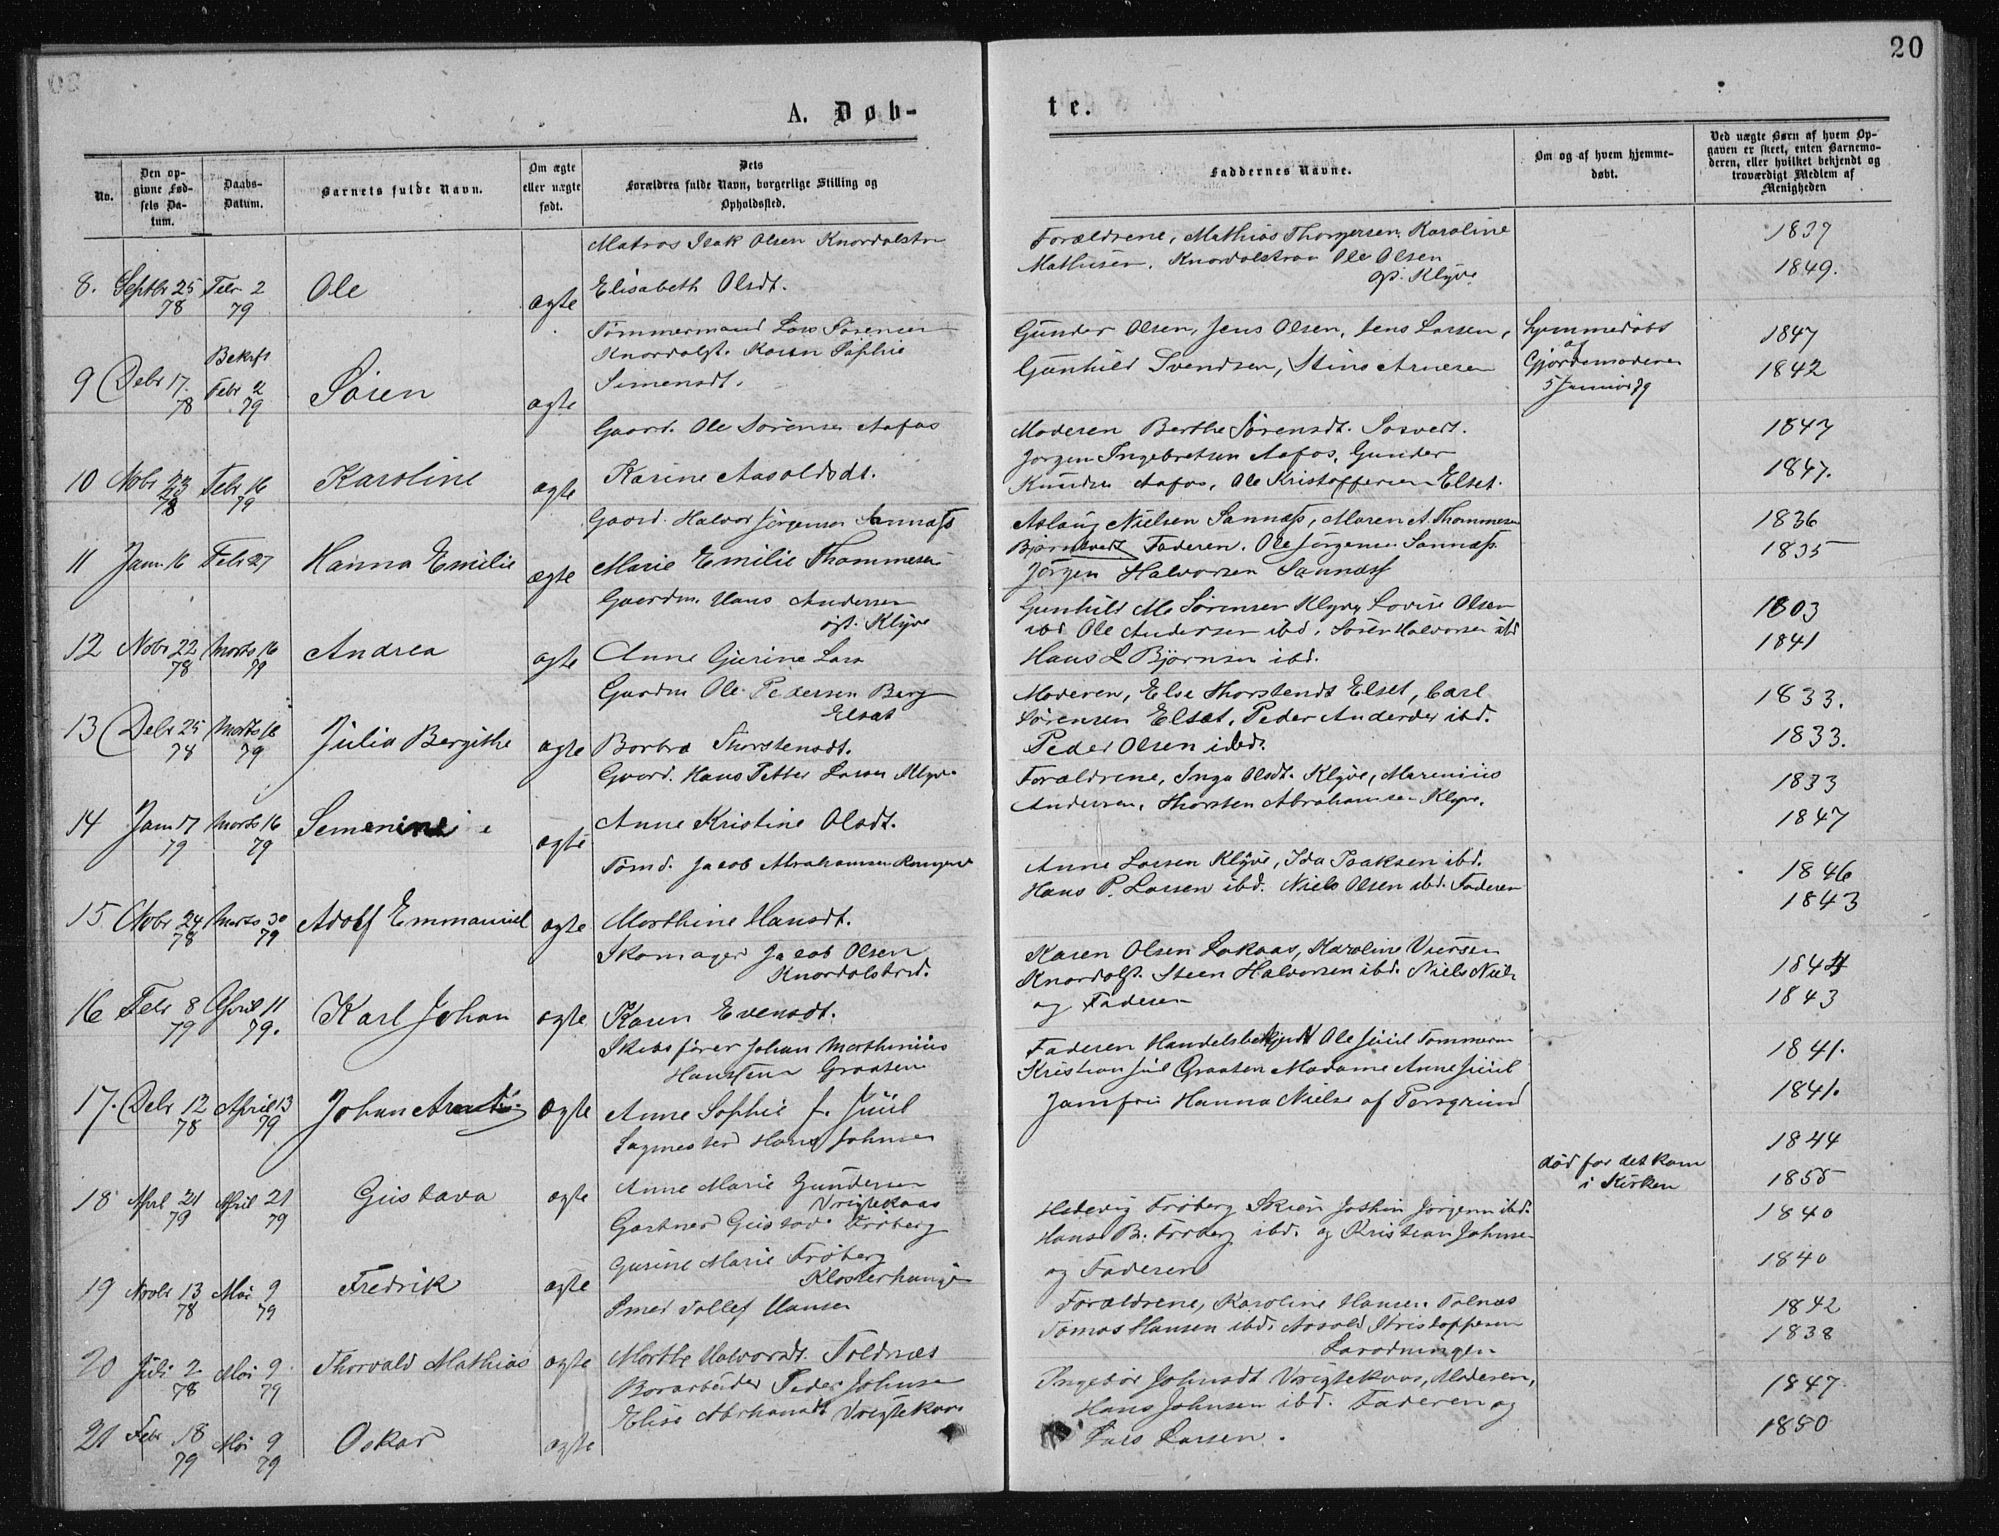 20
A. Døb-
te.
No.
Den op-
givne Fød-
sels Da-
tum.
Daabs-
Datum.
Barnets fulde Navn.
Om ægte
eller uægte
født.
Dets
Forældres fulde Navn, borgerlige Stilling og
Opholdssted.
Faddernes Navne.
Om og af hvem hjemme-
døbt.
Ved uægte Børn af hvem Op-
gaven er skeet, enten Barnemo-
deren, eller hvilket bekjendt og
troværdigt Medlem af
Menigheden
8. Septbr 25 78 Febr 2 79 Ole ægte
Matros Isak Olsen Knardalstr
Elisabeth Olsdt.
Forældrene, Mathias Thorgersen, Karoline
Mathisen, Knardalstran Ole Olsen
Klyve
1839
1849.
9 Debr 17. 78 Bekrft Febr 2 79 Sören ægte
Tömmermand Lars Sörensen
Knardalst. Karen Sophie
Simensdt.
Gunder Olsen, Jens Olsen, Jens Larsen,
Gunhild Svendsen, Stine Arnesen
hjemmedöbt
af
Gjordemoderen
5 Januar 79
1847
1842
10 Nobr 23 78 Febr 16 79 Karoline ægte
Gaard. Ole Sörensen Aafos
Karine Aasoldsdt.
Moderen Berthe Sörensdt.
Jörgen Ingebretsen Aafos, Gunder
Knudsen Aafos, Ole Kristoffersen Elset.
1847
1847.
11 Jan. 16 Febr 27 Hanna Emilie ægte
Gaard. Halvor Jörgensen Sannæss
Marie Emilie Thommesen
Aslaug Nielsen Sannæss, Maren A. Thommesen
Faderen. Ole Jörgensen Sannæss.
Jörgen Halvorsen Sannæss
1836
1835
12 Nobr 22 78 Marts 16 79 Andrea ægte
Gaardm. Hans Andersen
Klyve
Anne Gurine Lars
Gunhild M. Sörensen Klyve Lovise Olsen
ibd Ole Andersen ibd. Sören Halvorsen ibd
Hans L Björnsen ibd.
1803
1841
13 Debr 25 78 Marts 16 79 Julia Bergithe ægte
Gaardm Ole Pedersen Berg
Elset
Barbra Thorstensdt.
Moderen, Else Thorstensd Elset, Carl
Sörensen Elset, Peder Andersen ibd.
Peder Olsen ibd.
1833.
1833.
14 Jan 17 79 Marts 16 79 Semenine ægte
Gaard. Hans Petter Larsen Klyve
Anne Kristine Olsdt.
Forældrene, Inga Olsdt. Klyve, Marenius
Andersen, Thorsten Abrahamsen Klyve.
1833
1847
15 Nobr 24 78 Marts 30 79 Adolf Emmanuel ægte
Tömd. Jacob Abrahamsen
Marthine Hansdt.
Anne Larsen Klyve, Ida Isaksen ibd.
Hans P. Larsen ibd. Niels Olsen ibd. Faderen
1846
1843
16 Febr 8 79 April 11 79. Karl Johan ægte
Skomager Jacob Olsen
Knardalstrd.
Karen Evensdt.
Karen Olsen Lakaas, Karoline
Knardalst. Steen Halvorsen ibd. Niels Niels
og Faderen
1844
1843
17. Debr 12 78 April 13 79 Johan ægte
Skibsförer Johan Marthinius
Hansen Graaten
Anne Sophie f. Juul
Faderen Ole Juul
Kristian Juul Graaten Madame Anne Juul
Jomfru Hanna Nielse af Porsgrund
1841.
1841.
18 April 21 79 April 21 79 Gustava ægte
Sagmester Hans Johnsen
Anne Marie Gundersen
Vrigtekaas
död for det kom
i Kirken
1844
1855
19 Novbr 13 78 Mai 9 79 Fredrik ægte
Gartner Gustav Fröberg
Gurine Marie Fröberg
Hedevig Fröberg Skien Jörgen ibd.
Hans B. Fröberg ibd. og Kristian Johnse
og Faderen
1840
1840
20 Juli 2 78 Mai 9 79 Thorvald Mathias ægte
Smed Tollef Hansen
Marthe Halvorsdt. Toldnæs
Forældrene, Karoline Hansen Tolnæs
Tomas Hansen ibd. Aasold Kristoffersen
1842
1838
21 Febr 18 79 Mai 9 79 Oskar ægte
Peder Johnsen
Elise Vrigtekaas
Ingebor Johnsdt Vrigtekaas, Moderen,
Hans Johnsen ibd. Faderen og
Lars Larsen.
1847
1850